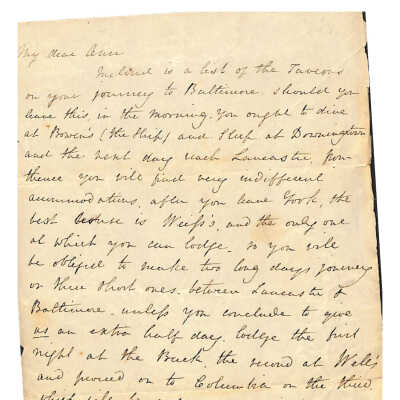 My dear Ann
Inclosed is a list of the Taverns
on your journey to Baltimore. should you
leave this, in the morning, you ought to dine
at Bowen's (the Ship) and sleep at Downingtown
and the next day reach Lancaster, from
thence you will find very indifferent
accommodations. after you leave York, the
best House is Weiss's, and the only one
at which you can lodge. so you will
be obliged to make two long days journey
or three short ones, between Lancaster &
Baltimore, unless you conclude to give
us an extra half day, lodge the first
night at the Buck the second at
and proceed on to Columbia on the third
will be